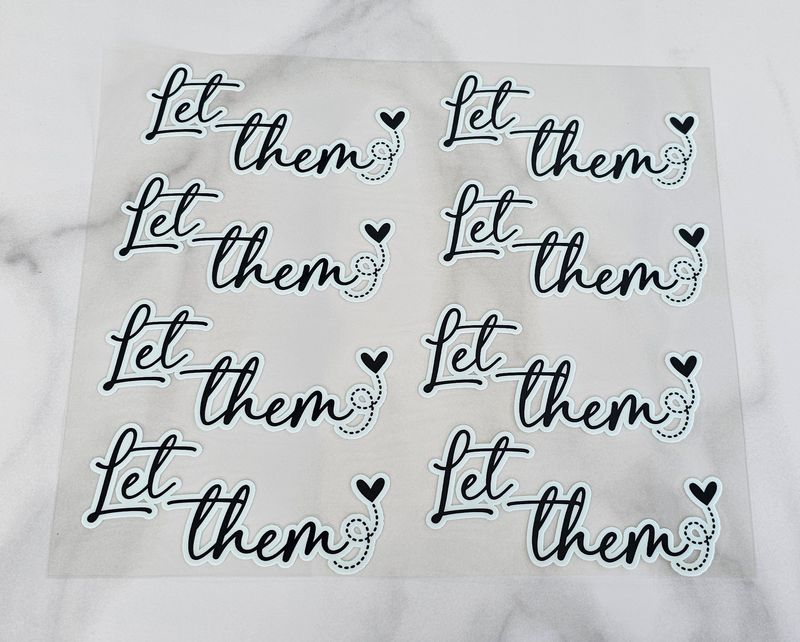 Let
them
Let
them
Let
them
Let
them
Let
them
Let
them
Let
them
Let
them